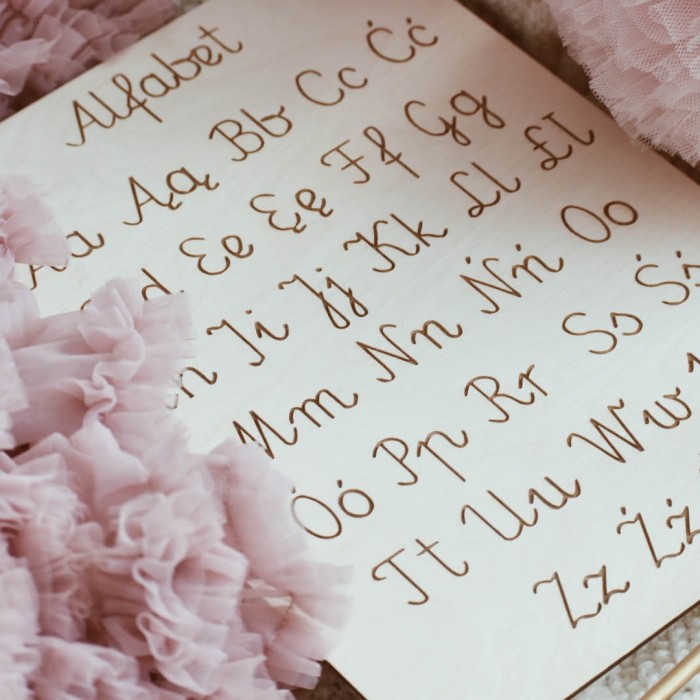 Alfabet
Aa Ąą Bb Cc Ćć
d Ee Ęę Ff Gg
Ii Jj Kk Ll Łł
Mm Nn Ńń Oo
Óó Pp Rr Ss Śś
Tt Uu Ww
Zz Źź